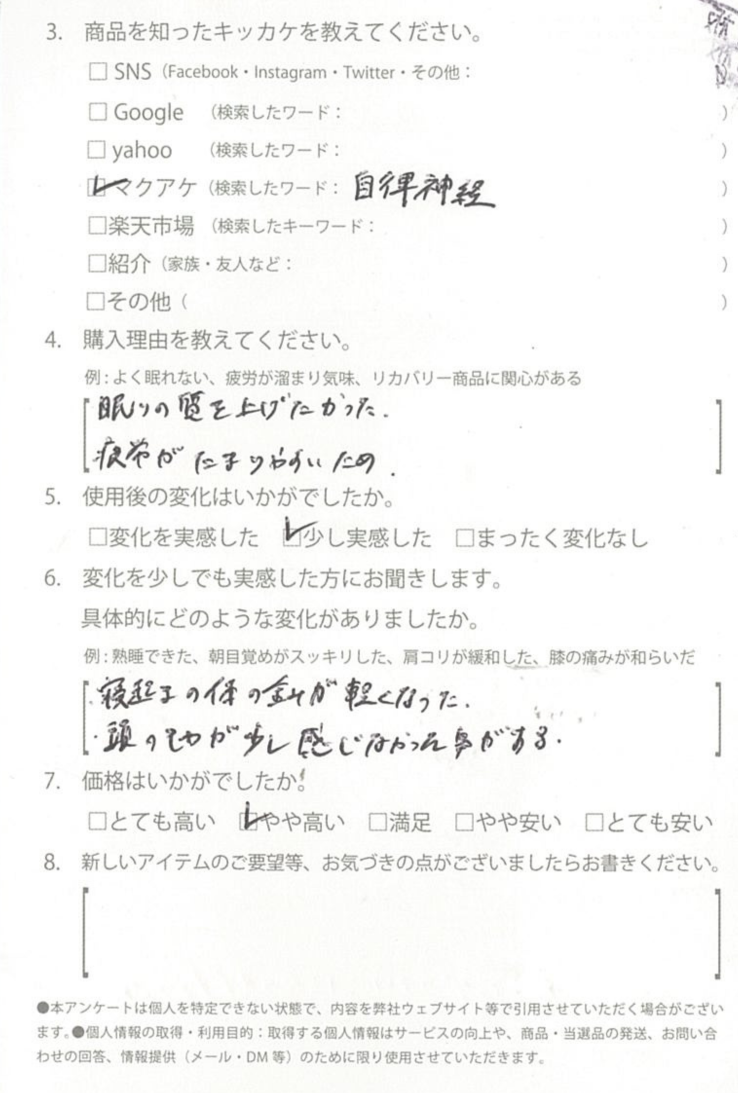 3. 商品を知ったキッカケを教えてください。
□ SNS（Facebook・Instagram・Twitter・その他：
□ Google （検索したワード： ）
□ yahoo （検索したワード： ）
☑マクアケ（検索したワード： 自律神経 ）
□楽天市場（検索したキーワード： ）
□紹介（家族・友人など： ）
□その他（ ）
4. 購入理由を教えてください。
例：よく眠れない、疲労が溜まり気味、リカバリー商品に関心がある
眠りの質を上げたかった.
疲労がたまりやすいため.
5. 使用後の変化はいかがでしたか。
□変化を実感した ☑少し実感した □まったく変化なし
6. 変化を少しでも実感した方にお聞きします。
具体的にどのような変化がありましたか。
例：熟睡できた、朝目覚めがスッキリした、肩コリが緩和した、膝の痛みが和らいだ
・寝起きの体の が軽くなった.
・頭の が少し感じなかった気がする.
7. 価格はいかがでしたか。
□とても高い ☑やや高い □満足 □やや安い □とても安い
8. 新しいアイテムのご要望等、お気づきの点がございましたらお書きください。
●本アンケートは個人を特定できない状態で、内容を弊社ウェブサイト等で引用させていただく場合がござい
ます。●個人情報の取得・利用目的：取得する個人情報はサービスの向上や、商品・当選品の発送、お問い合
わせの回答、情報提供（メール・DM 等）のために限り使用させていただきます。